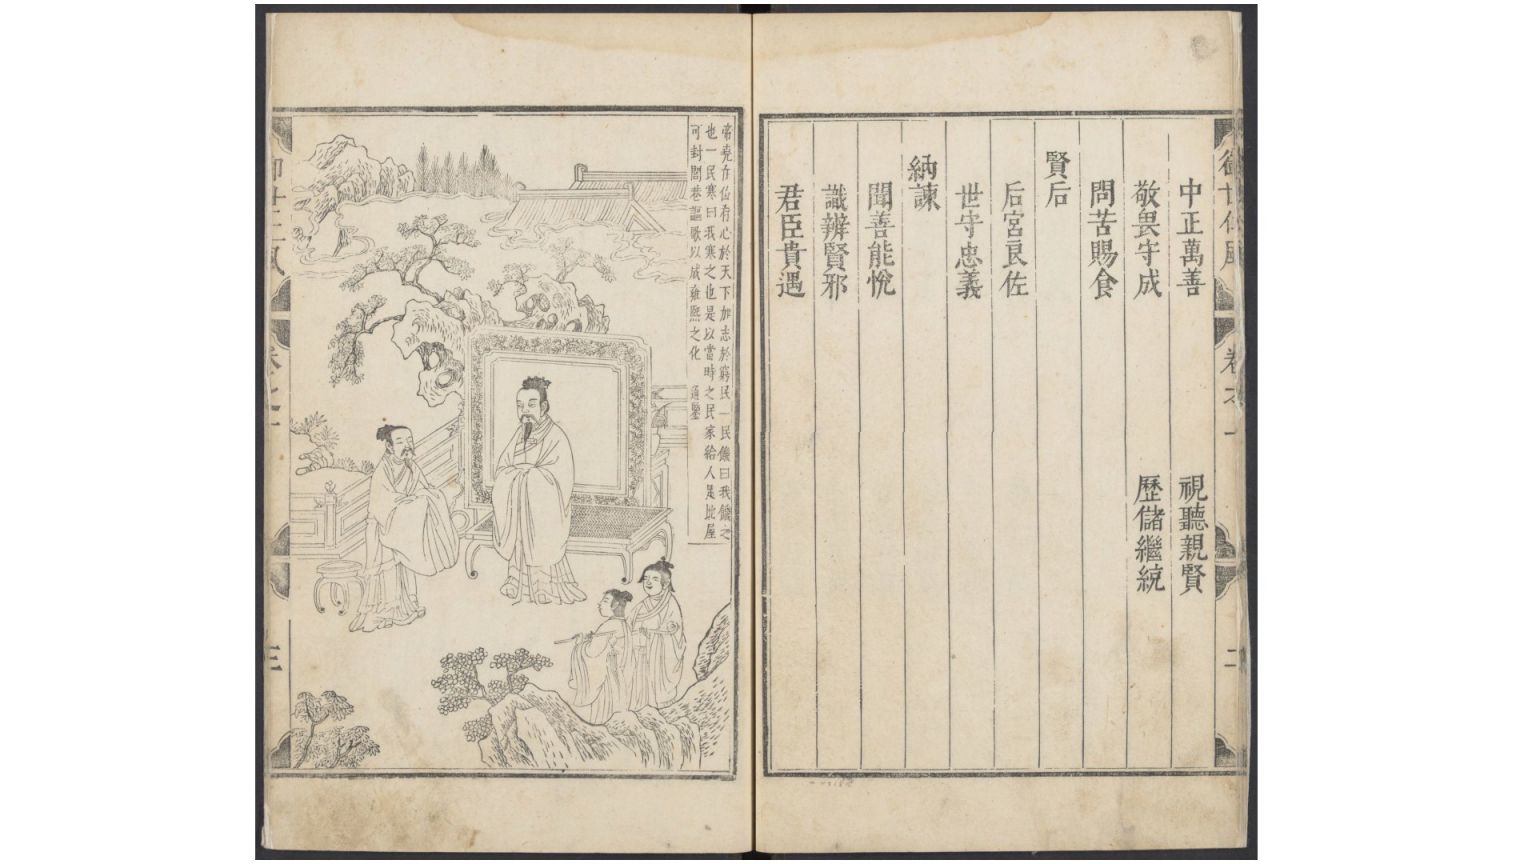 中正萬善 視聽親賢
敬畏守成 歷儲繼統
問苦賜食
賢后
后宮良佐
世守忠義
納諫
聞善能悅
識辨賢邪
君臣貴遇
卷之一
二
帝堯在位存心於天下加志於窮民一民饑曰我饑之
也一民寒曰我寒之也是以當時之民家給人足比屋
可封閭巷謳歌以成雍熙之化 通鑒
卷之一
三